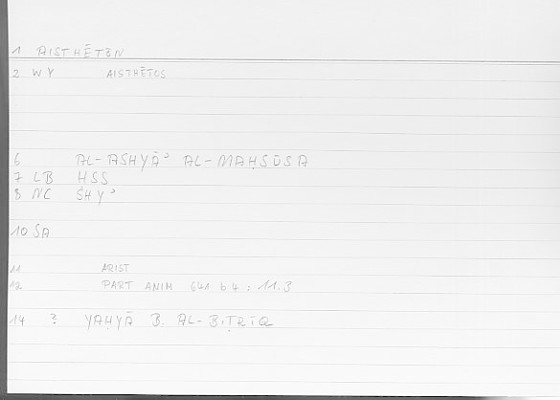 1 AISTHĒTON
2 WY AISTHĒTOS
6 AL-ASHYĀʾ AL-MAḤSŪSA
7 LB ḤSS
8 NC SHYʾ
10 SA
11 ARIST
12 PART ANIM 641 b 4 : 11.3
14 ? YAḤYĀ B. AL-BIṬRĪQ